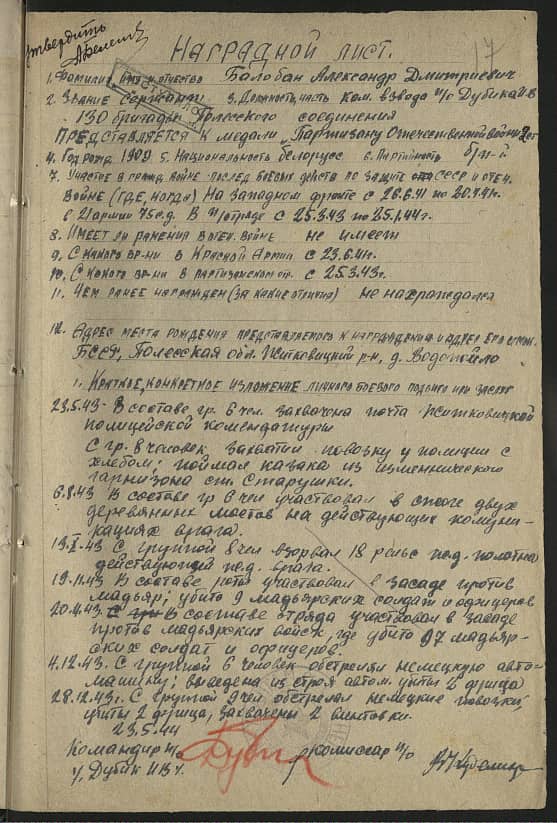 Утвердить
17
Наградной лист.
1. Фамилия имя и отчество Балобан Александр Дмитриевич
2. Звание Сержант 3. Должность, часть ком. взвода п/о Дубика И.В.
130 бригады Полесского соединения
Представляется к медали „Партизану Отечественной войны" 2 ст
4. Год рожд 1909 5. Национальность белорусс 6. Партийность б/п-й
7. Участие в гражд. войне послед боевых действ по защите СССР и отеч.
войне (где, когда) На Западном фронте с 26.6.41 по 20.7.41г.
в 21 армии 75 с.д. В п/отряде с 25.3.43 по 25.1.44г.
8. Имеет ли ранения в отеч. войне не имеет
9. С какого вр-ни в Красной Армии с 23.6.41г.
10. С какого вр-ни в партизанском от. с 25.3.43г.
11. Чем ранее награжден (за какие отличия) не награждался
12. Адрес места рождения представляемого к награждению и адрес его семьи.
БССР, Полесская обл. Житковицкий р-н, д. Водопойло
1. Краткое, конкретное изложение личного боевого подвига или заслуг
23.5.43- В составе гр. 6 чел. захвачена почта Житковичской
полицейской комендатуры
С гр. 8 человек захватил повозку у полиции с
хлебом; поймал казака из изменнического
гарнизона ст. Старушки.
6.8.43 В составе гр 6 чел участвовал в сжоге двух
деревянных мостов на действующих комуни-
кациях врага.
С группой 8 чел взорвал 18 рельс ж.д. полотна
действующей ж.д. врага.
19.11.43 В составе роты участвовал в засаде против
мадьяр; убито 9 мадьярских солдат и офицеров
В составе отряда участвовал в засаде
против мадьярских войск, где убито 97 мадьяр-
ских солдат и офицеров.
4.12.43. С группой 6 человек обстреляли немецкую авто-
машину; выведена из строя автом. убиты 2 фрица
28.12.43г. С группой 9 чел обстрелял немецкие повозки,
убиты 2 фрица, захвачены 2 винтовки.
23.5.44
Командир п/о комиссар п/о
Дубик И.В.